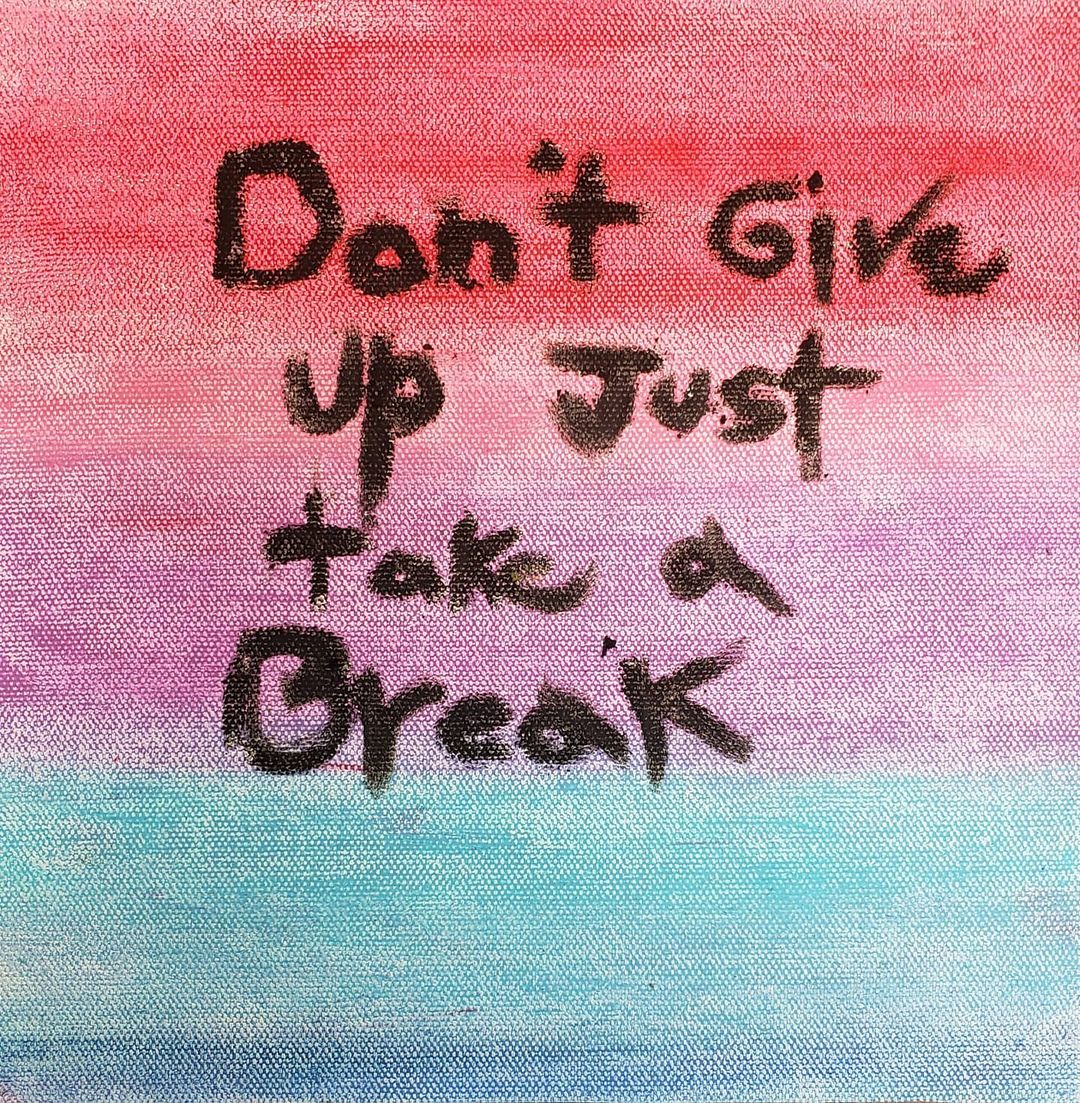 Don't Give
up Just
take a
Break